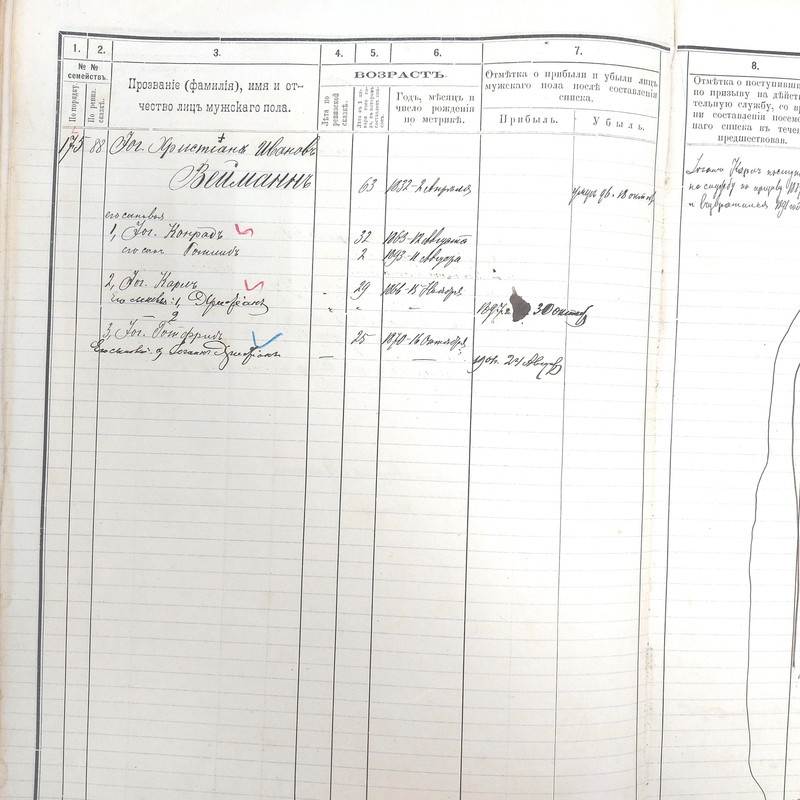 1. 2. 3. 4. 5. 6. 7. 8.
№ №
семействъ.
По порядку.
По ревиз. сказкѣ.
Прозваніе (фамилія), имя и от-
чество лицъ мужскаго пола.
Лѣта по ревизской сказкѣ.
ВОЗРАСТЪ.
Годъ, мѣсяцъ и
число рожденія
по метрикѣ.
Отмѣтка о прибыли и убыли лицъ
мужскаго пола послѣ составленія
списка.
Прибыль.
Убыль.
Отмѣтка о поступивши
по призыву на дѣйст
тельную службу, со вр
ни составленія посем
наго списка въ течен
предшествовая.
175 88 Іог. Христіанъ Ивановъ
Вейманнъ
63 1832-2 Апрѣля
умеръ 96. 18 октяб.
Іоганъ Карлъ поступ
на службу по призыву
и возвратился
его сыновья
1, Іог. Конрадъ 32 1863-12 Августа
его сынъ Готлибъ 2 1893-11
2, Іог. Карлъ 29 1866-15 Ноября
его сыновья: 1, 1897 г. 30 октяб
3, Іог. Готфридъ 25 1870-16 Октября
Его сыновья: Іоганъ 1901. 24 Август